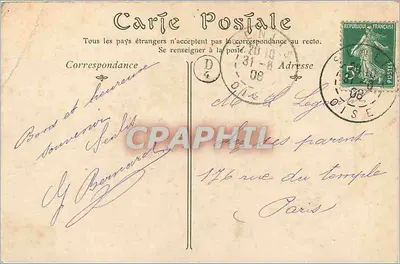 Carte Postale
Tous les pays étrangers n'acceptent pas la correspondance au recto.
Se renseigner à la poste.
Correspondance
Adresse
D
4
31-8
08
OISE
REPUBLIQUE FRANÇAISE
5c
POSTES
08
OISE
Bons et heureux
souvenir
Senlis
G Bernard
M
parent
176 rue du temple
Paris
CPAPHIL